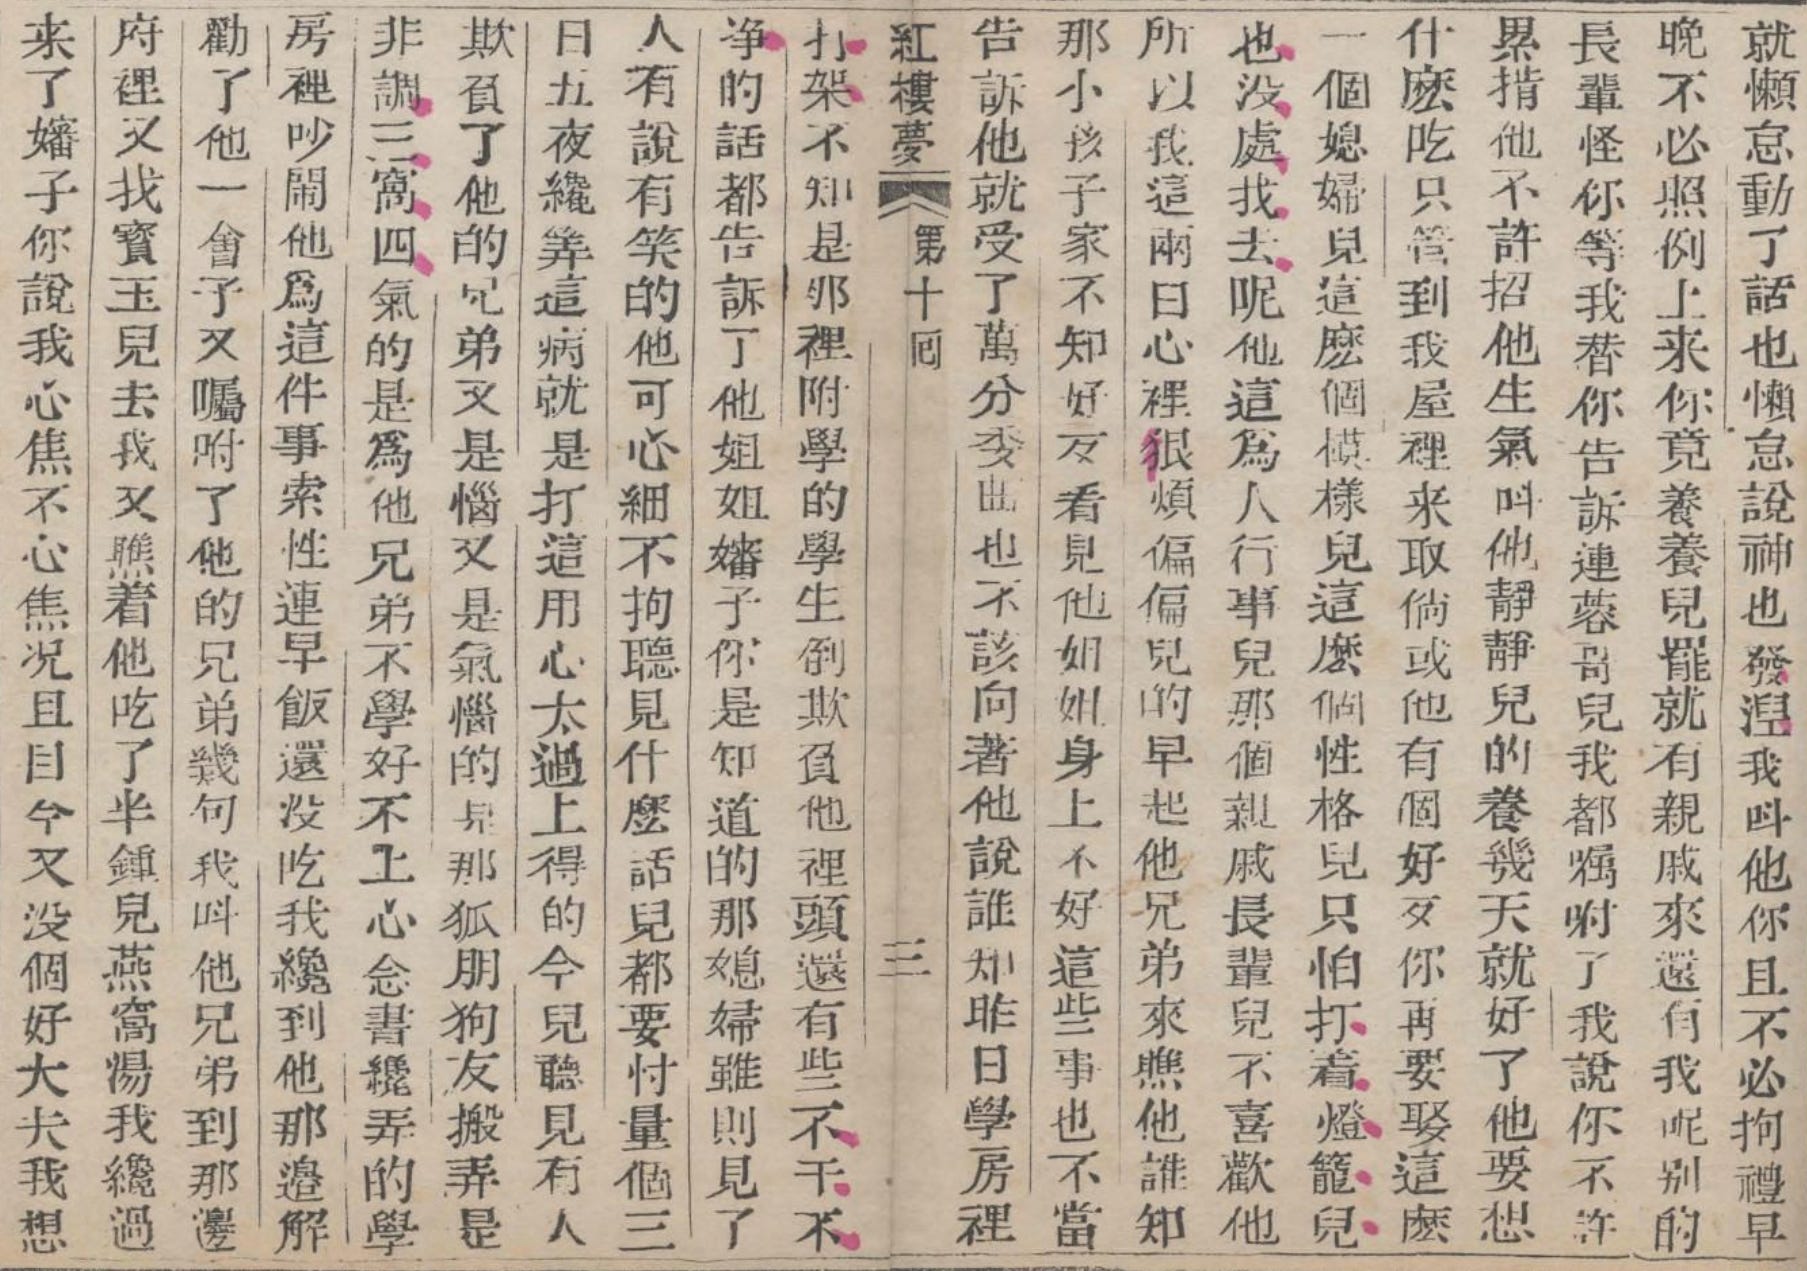 就懶怠動了話也懶怠說神也發涅我呌他你且不必拘禮早
晚不必照例上来你竟養養兒罷就有親戚來還有我呢别的
長輩怪你等我替你告訴連蓉哥兒我都嘱咐了我說你不許
累掯他不許招他生氣呌他靜靜兒的養幾天就好了他要想
什麽吃只管到我屋裡来取倘或他有個好歹你再要娶這麽
一個媳婦兒這麽個模樣兒這麽個性格兒只怕打着燈籠兒
也没處找去呢他這爲人行事兒那個親戚長輩兒不喜歡他
所以我這兩日心裡狠煩偏偏兒的早起他兄弟來瞧他誰知
那小孩子家不知好歹看見他姐姐身上不好這些事也不當
告訴他就受了萬分委曲也不該向著他說誰知昨日學房裡
紅樓夢 第十囘 三
打架不知是那裡附學的學生倒欺負他裡頭還有些不干不
净的話都告訴了他姐姐嬸子你是知道的那媳婦雖則見了
人有說有笑的他可心細不拘聽見什麽話兒都要忖量個三
日五夜纔筭這病就是打這用心太過上得的今兒聽見有人
欺負了他的兄弟又是惱又是氣惱的是那狐朋狗友搬弄是
非調三窩四氣的是爲他兄弟不學好不上心念書纔弄的學
房裡吵鬧他爲這件事索性連早飯還没吃我纔到他那邉解
勸了他一會子又囑咐了他的兄弟幾句我呌他兄弟到那邊
府裡又找寳玉兒去我又瞧着他吃了半鍾兒燕窩湯我纔過
来了嬸子你說我心焦不心焦况且目今又没個好大夫我想